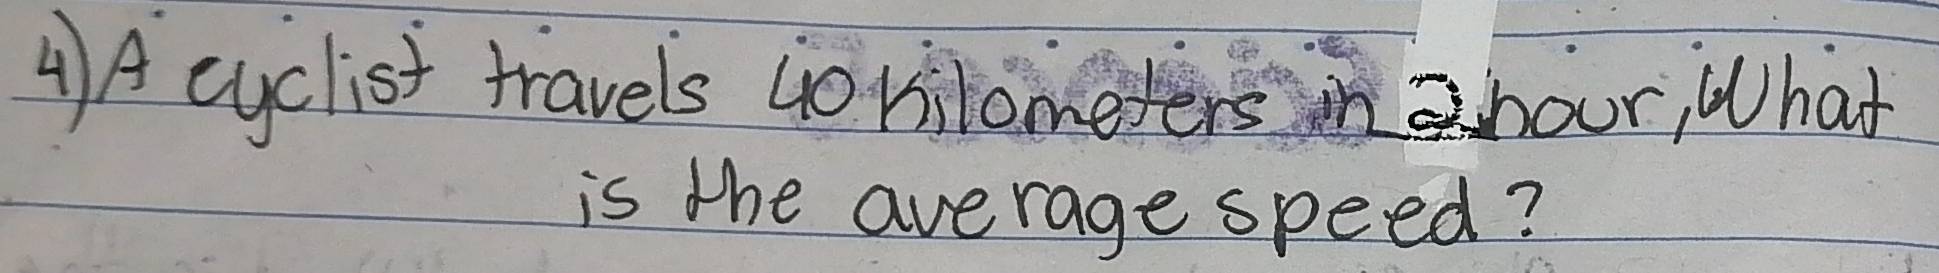 4) A cyclist travels 40 kilometers in 2 hour, What
is the average speed?